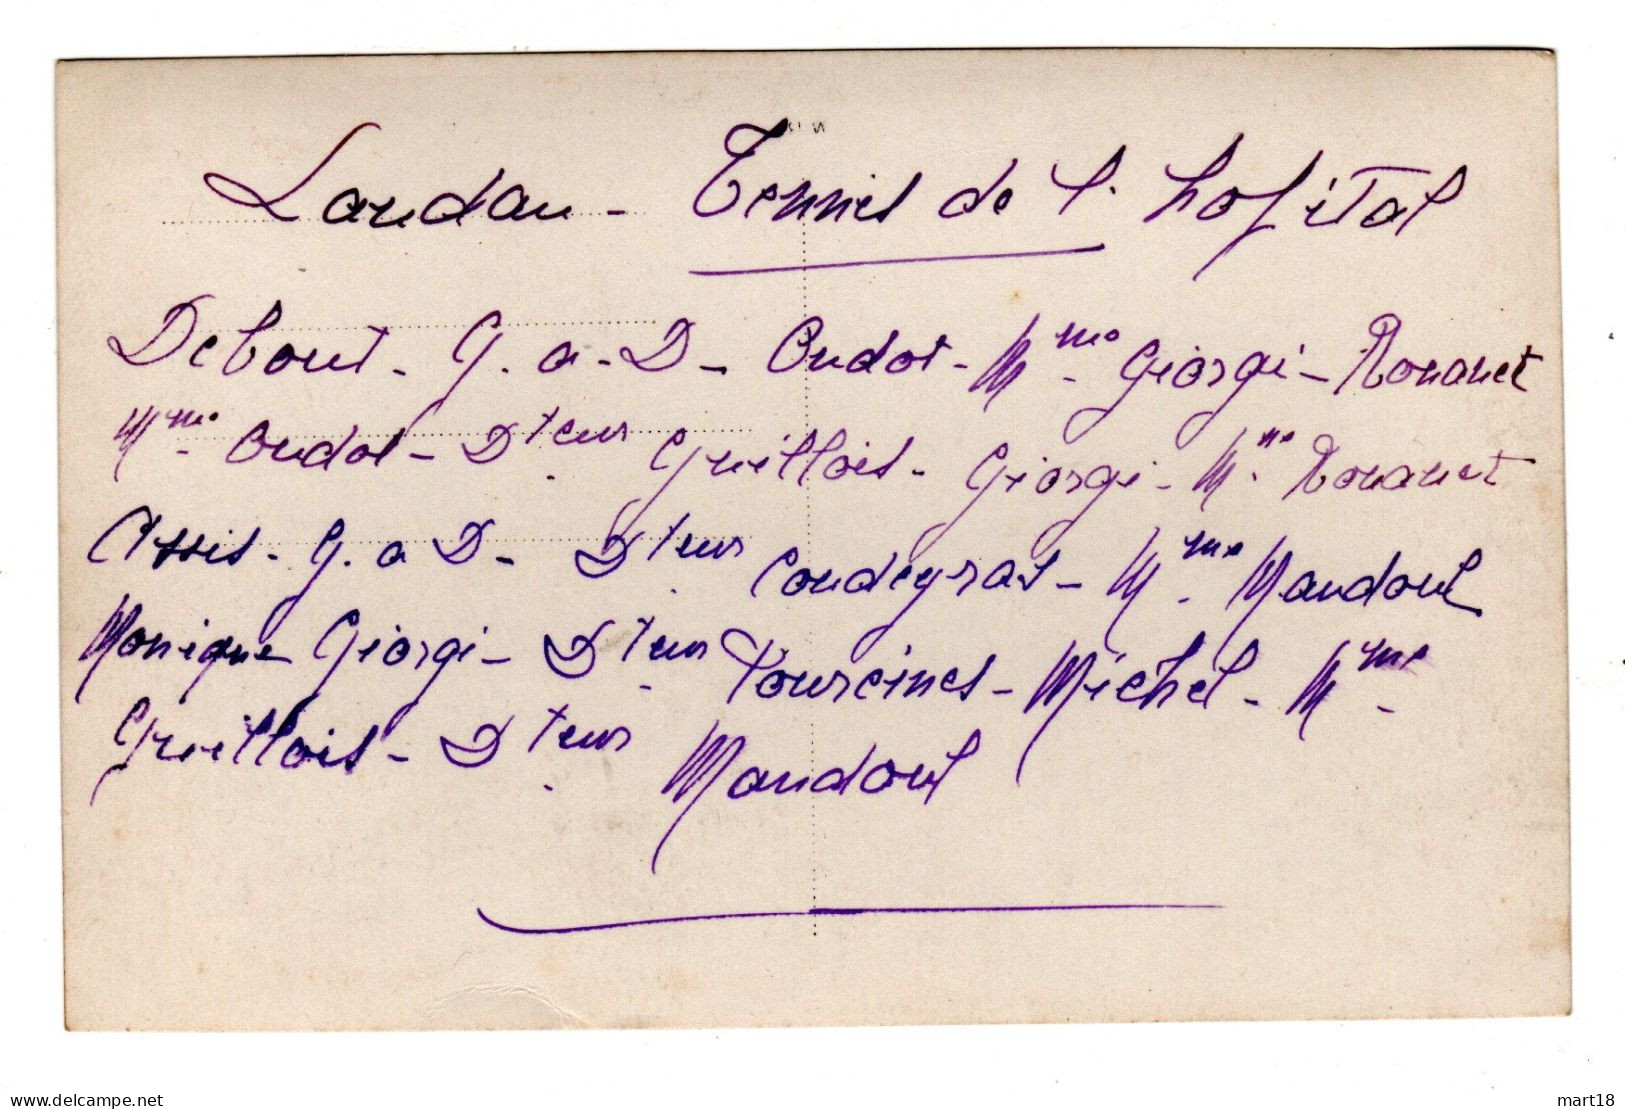 Landau - Tennis de l'hopital
Debout - G. a - D - Oudot - Mme Giorgi - Rouanet
Mme Oudot - Dteur Guillois - Giorgi - Mme Rouanet
Assis - G. a D - Dteur Coudeyras - Mme Maudoul
Monique Giorgi - Dteur Tourcines - Michel - Mme
Guillois - Dteur Maudoul
www.delcampe.net
mart18